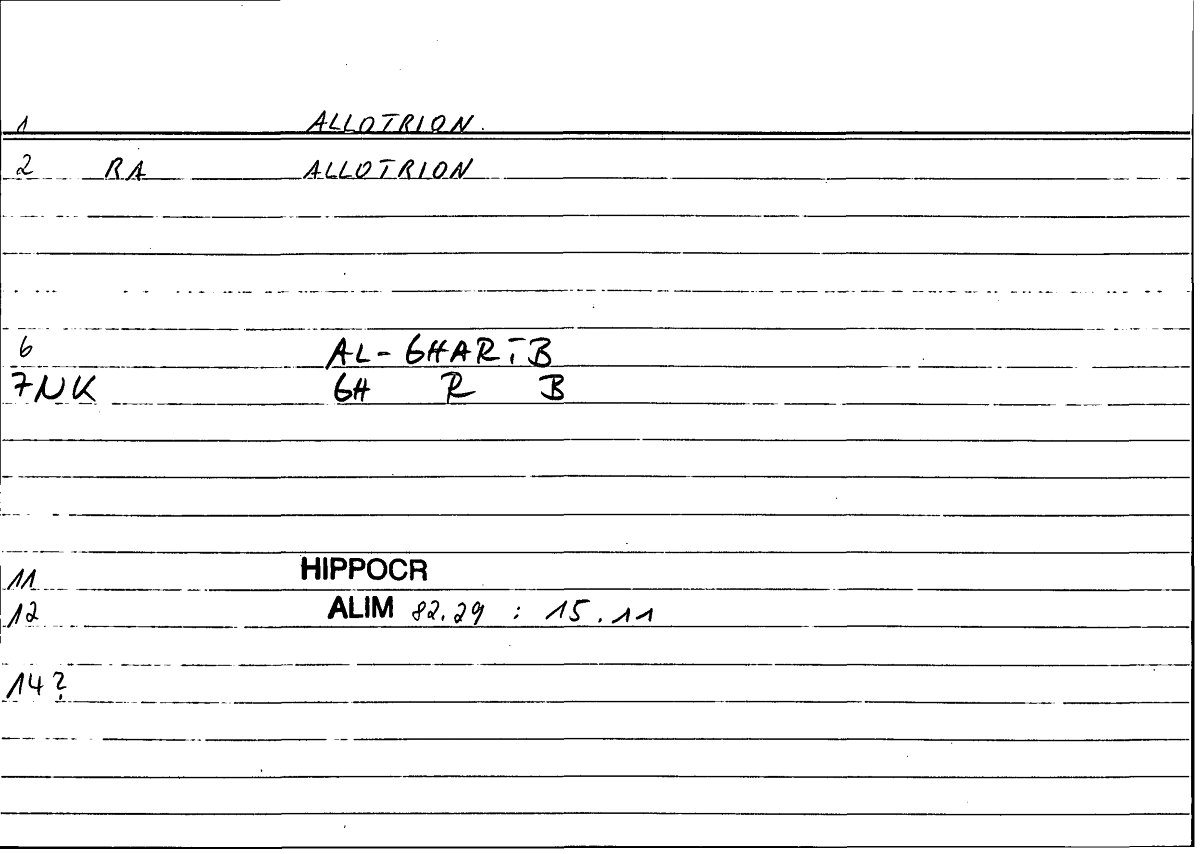 1 ALLOTRION.
2 RA ALLOTRION
6 AL-GHARĪB
7NK GH R B
11 HIPPOCR
12 ALIM 82.29 : 15.11
14?